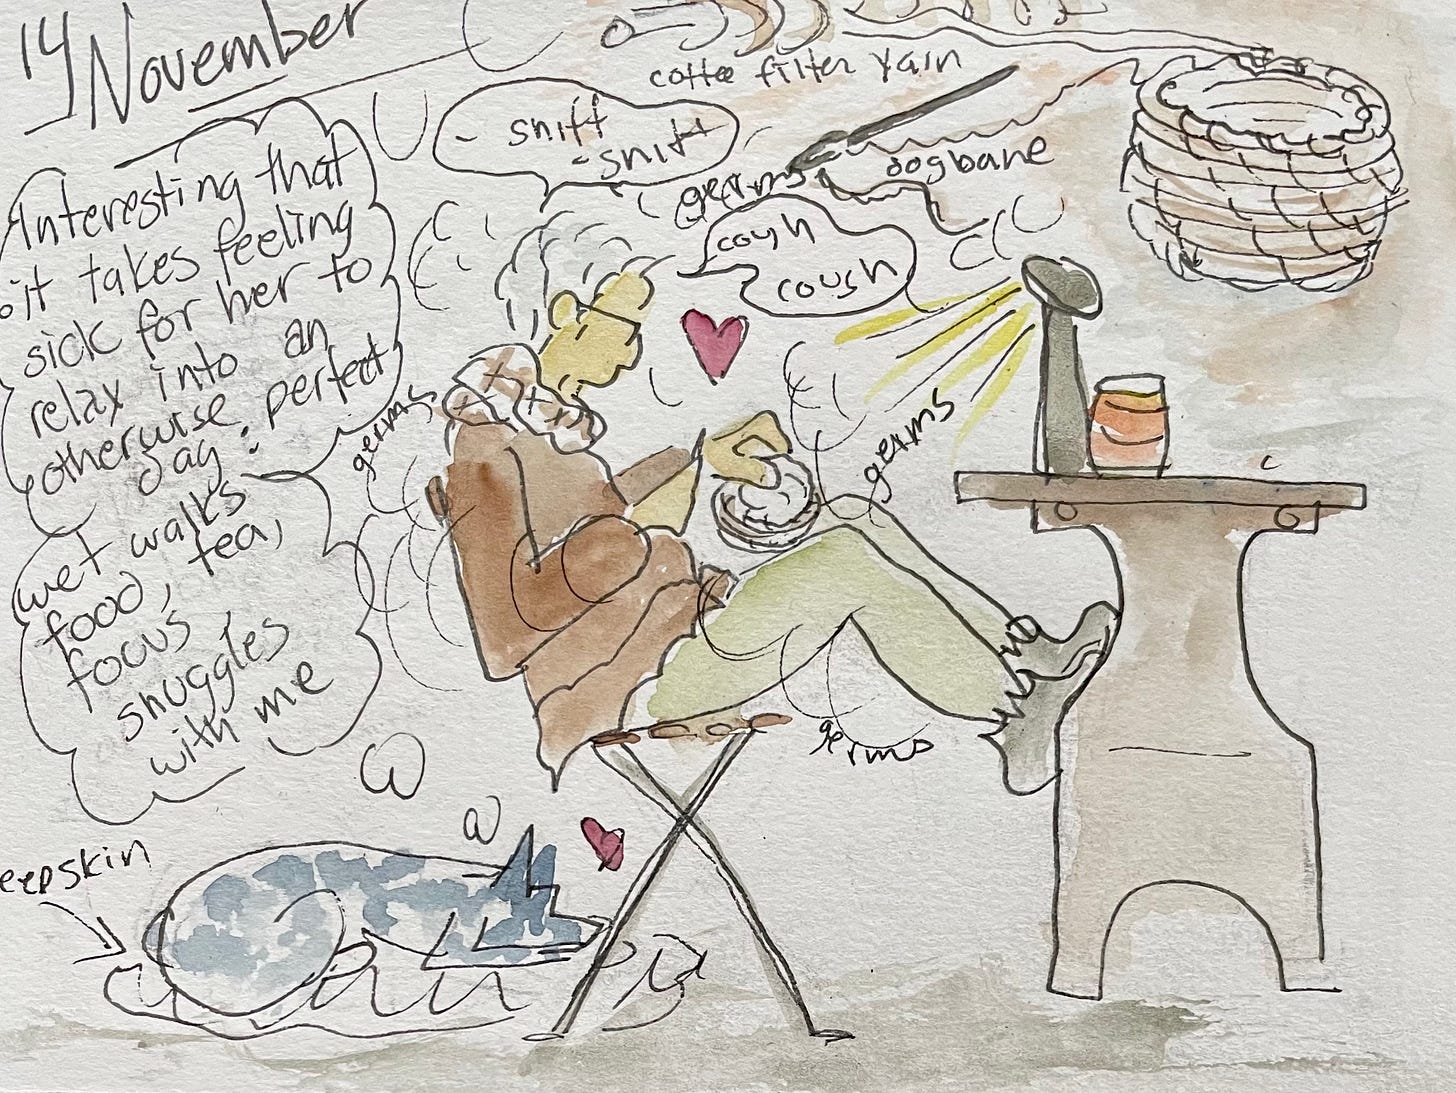 14 November
coffee filter yarn
sniff
-sniff
germs
dogbane
cough
cough
Interesting that
it takes feeling
sick for her to
relax into an
otherwise perfect
day:
wet walks
food, tea,
focus
snuggles
with me
germs
germs
germs
eepskin